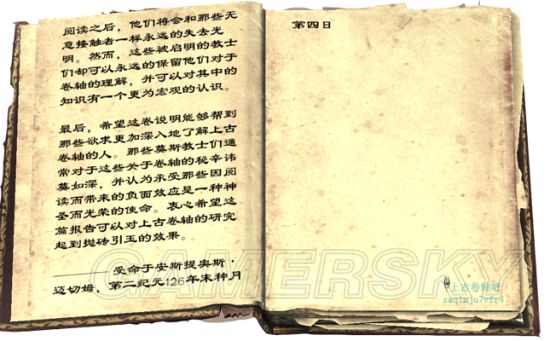 阅读之后,他们将会和那些无
意接触者一样永远的失去光
明。然而,这些被启明的教士
们却可以永远的保留他们对于
卷轴的理解,并可以对其中的
知识有一个更为宏观的认识。
最后,希望这卷说明能够帮到
那些欲求更加深入地了解上古
卷轴的人。那些莫斯教士们通
常对于这些关于卷轴的秘辛讳
莫如深,并认为承受那些因阅
读而带来的负面效应是一种神
圣而光荣的使命。衷心希望这
篇报告可以对上古卷轴的研究
起到抛砖引玉的效果。
——受命于安斯提奥斯·
迈切姆,第二纪元126年末种月
第四日
GAMERSKY
上古卷轴吧
zaq1mju7vfr4